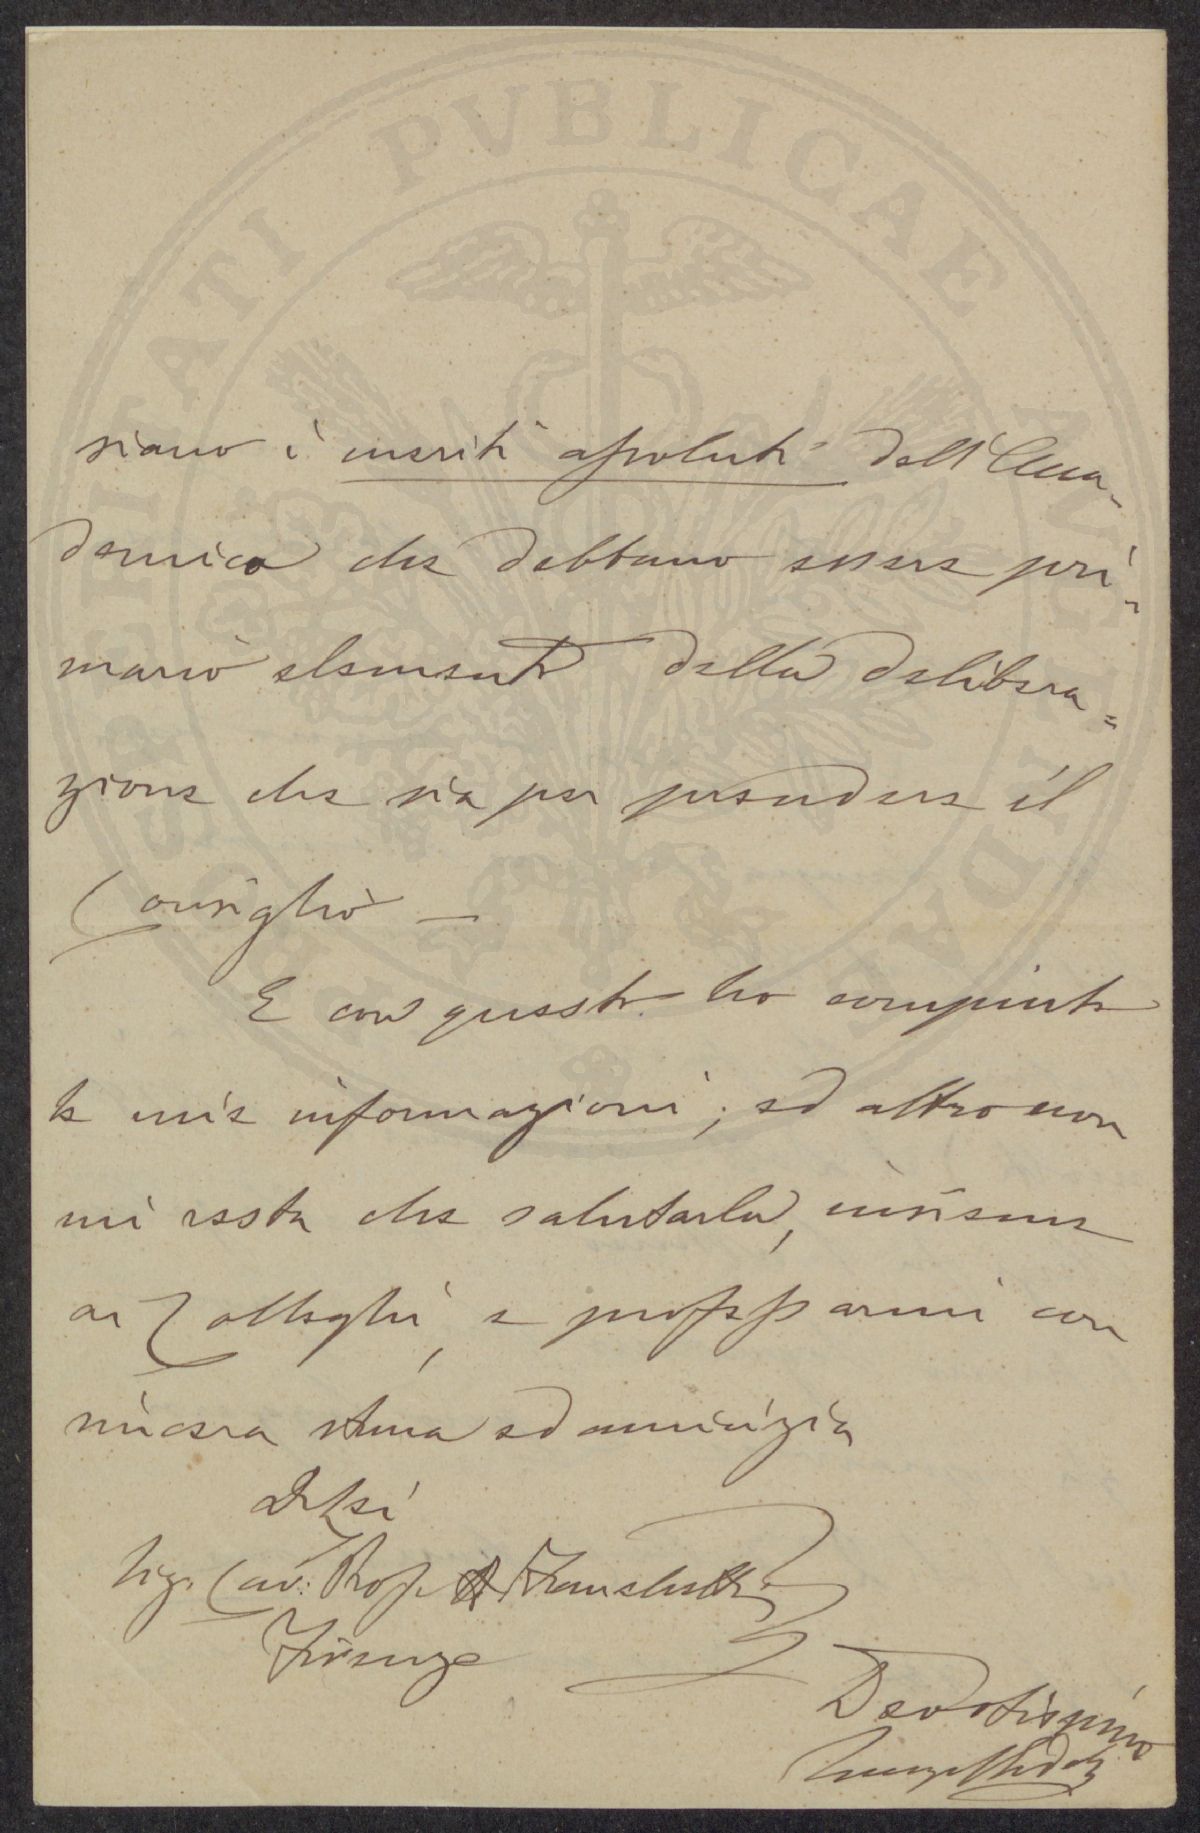 PVBLICAE
siano i meriti assoluti dell'Acca-
demico che debbano essere pri-
mario elemento della delibera=
zione che sia per prendere il
Consiglio —
E con questo ho compiuto
le mie informazioni; ed altro non
mi resta che salutarla, insieme
ai Colleghi, e professarmi con
sincera stima ed amicizia
Di Lei
Sig. Cav. Prof. Franceschi
Firenze
Devotissimo